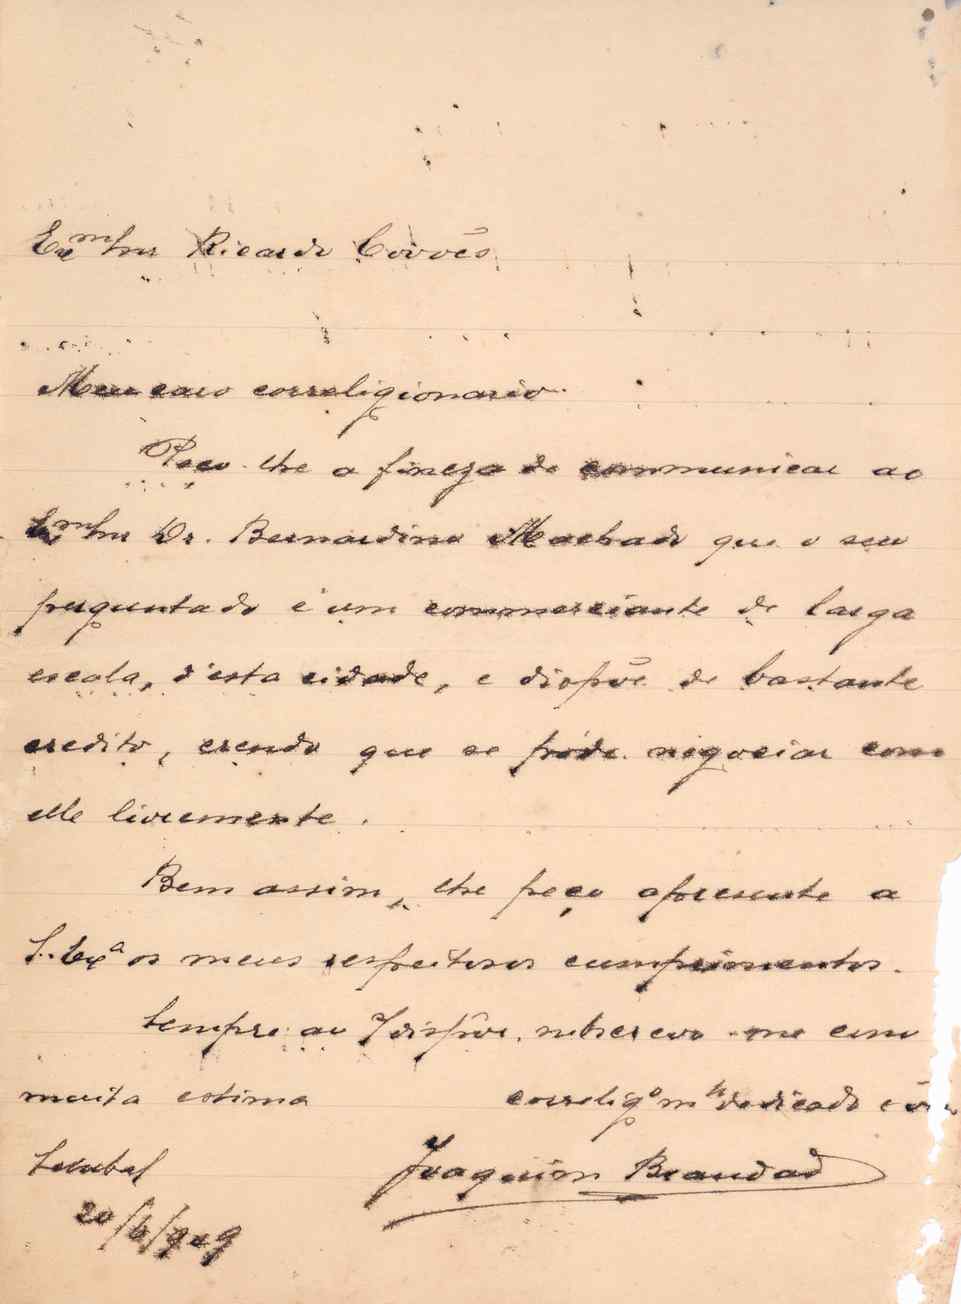 Exmo Snr Ricardo Covões
Meu caro correligionario.
Peço-lhe a fineza de communicar ao
Exmo Snr Dr. Bernardino Machado que o seu
perguntado é um commerciante de larga
escala, d'esta cidade, e dispõe de bastante
credito, crendo que se póde negociar com
elle livremente.
Bem assim, lhe peço apresente a
S. Exª os meus respeitosos cumprimentos.
Sempre ao dispôr, subscrevo-me com
muita estima correligº mtº dedicado e
Setubal Joaquim Brandão
20/6/909